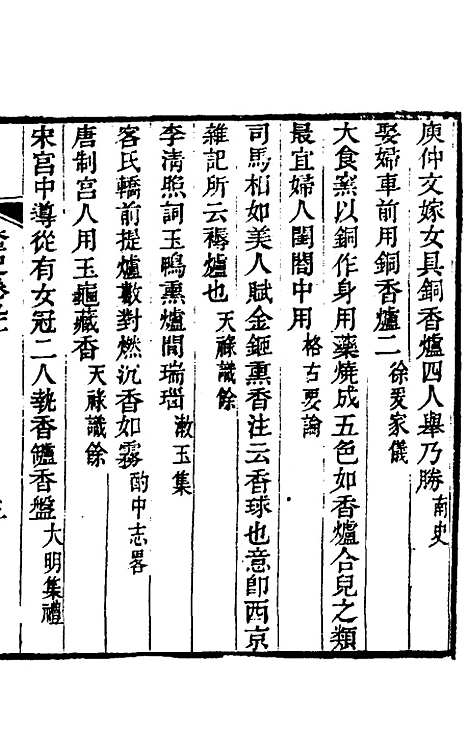 庾仲文嫁女具銅香爐四人舉乃勝南史
娶婦車前用銅香爐二徐爰家儀
大食窰以銅作身用藥燒成五色如香爐合兒之類
最宜婦人閨閤中用格古要論
司馬相如美人賦金鉔熏香注云香球也意卽西京
雜記所云褥爐也天祿識餘
李清照詞玉鴨熏爐閒瑞瑙漱玉集
客氏轎前提爐數對燃沉香如霧酌中志畧
唐制宮人用玉龜藏香天祿識餘
宋宮中導從有女冠二人執香爐香盤大明集禮